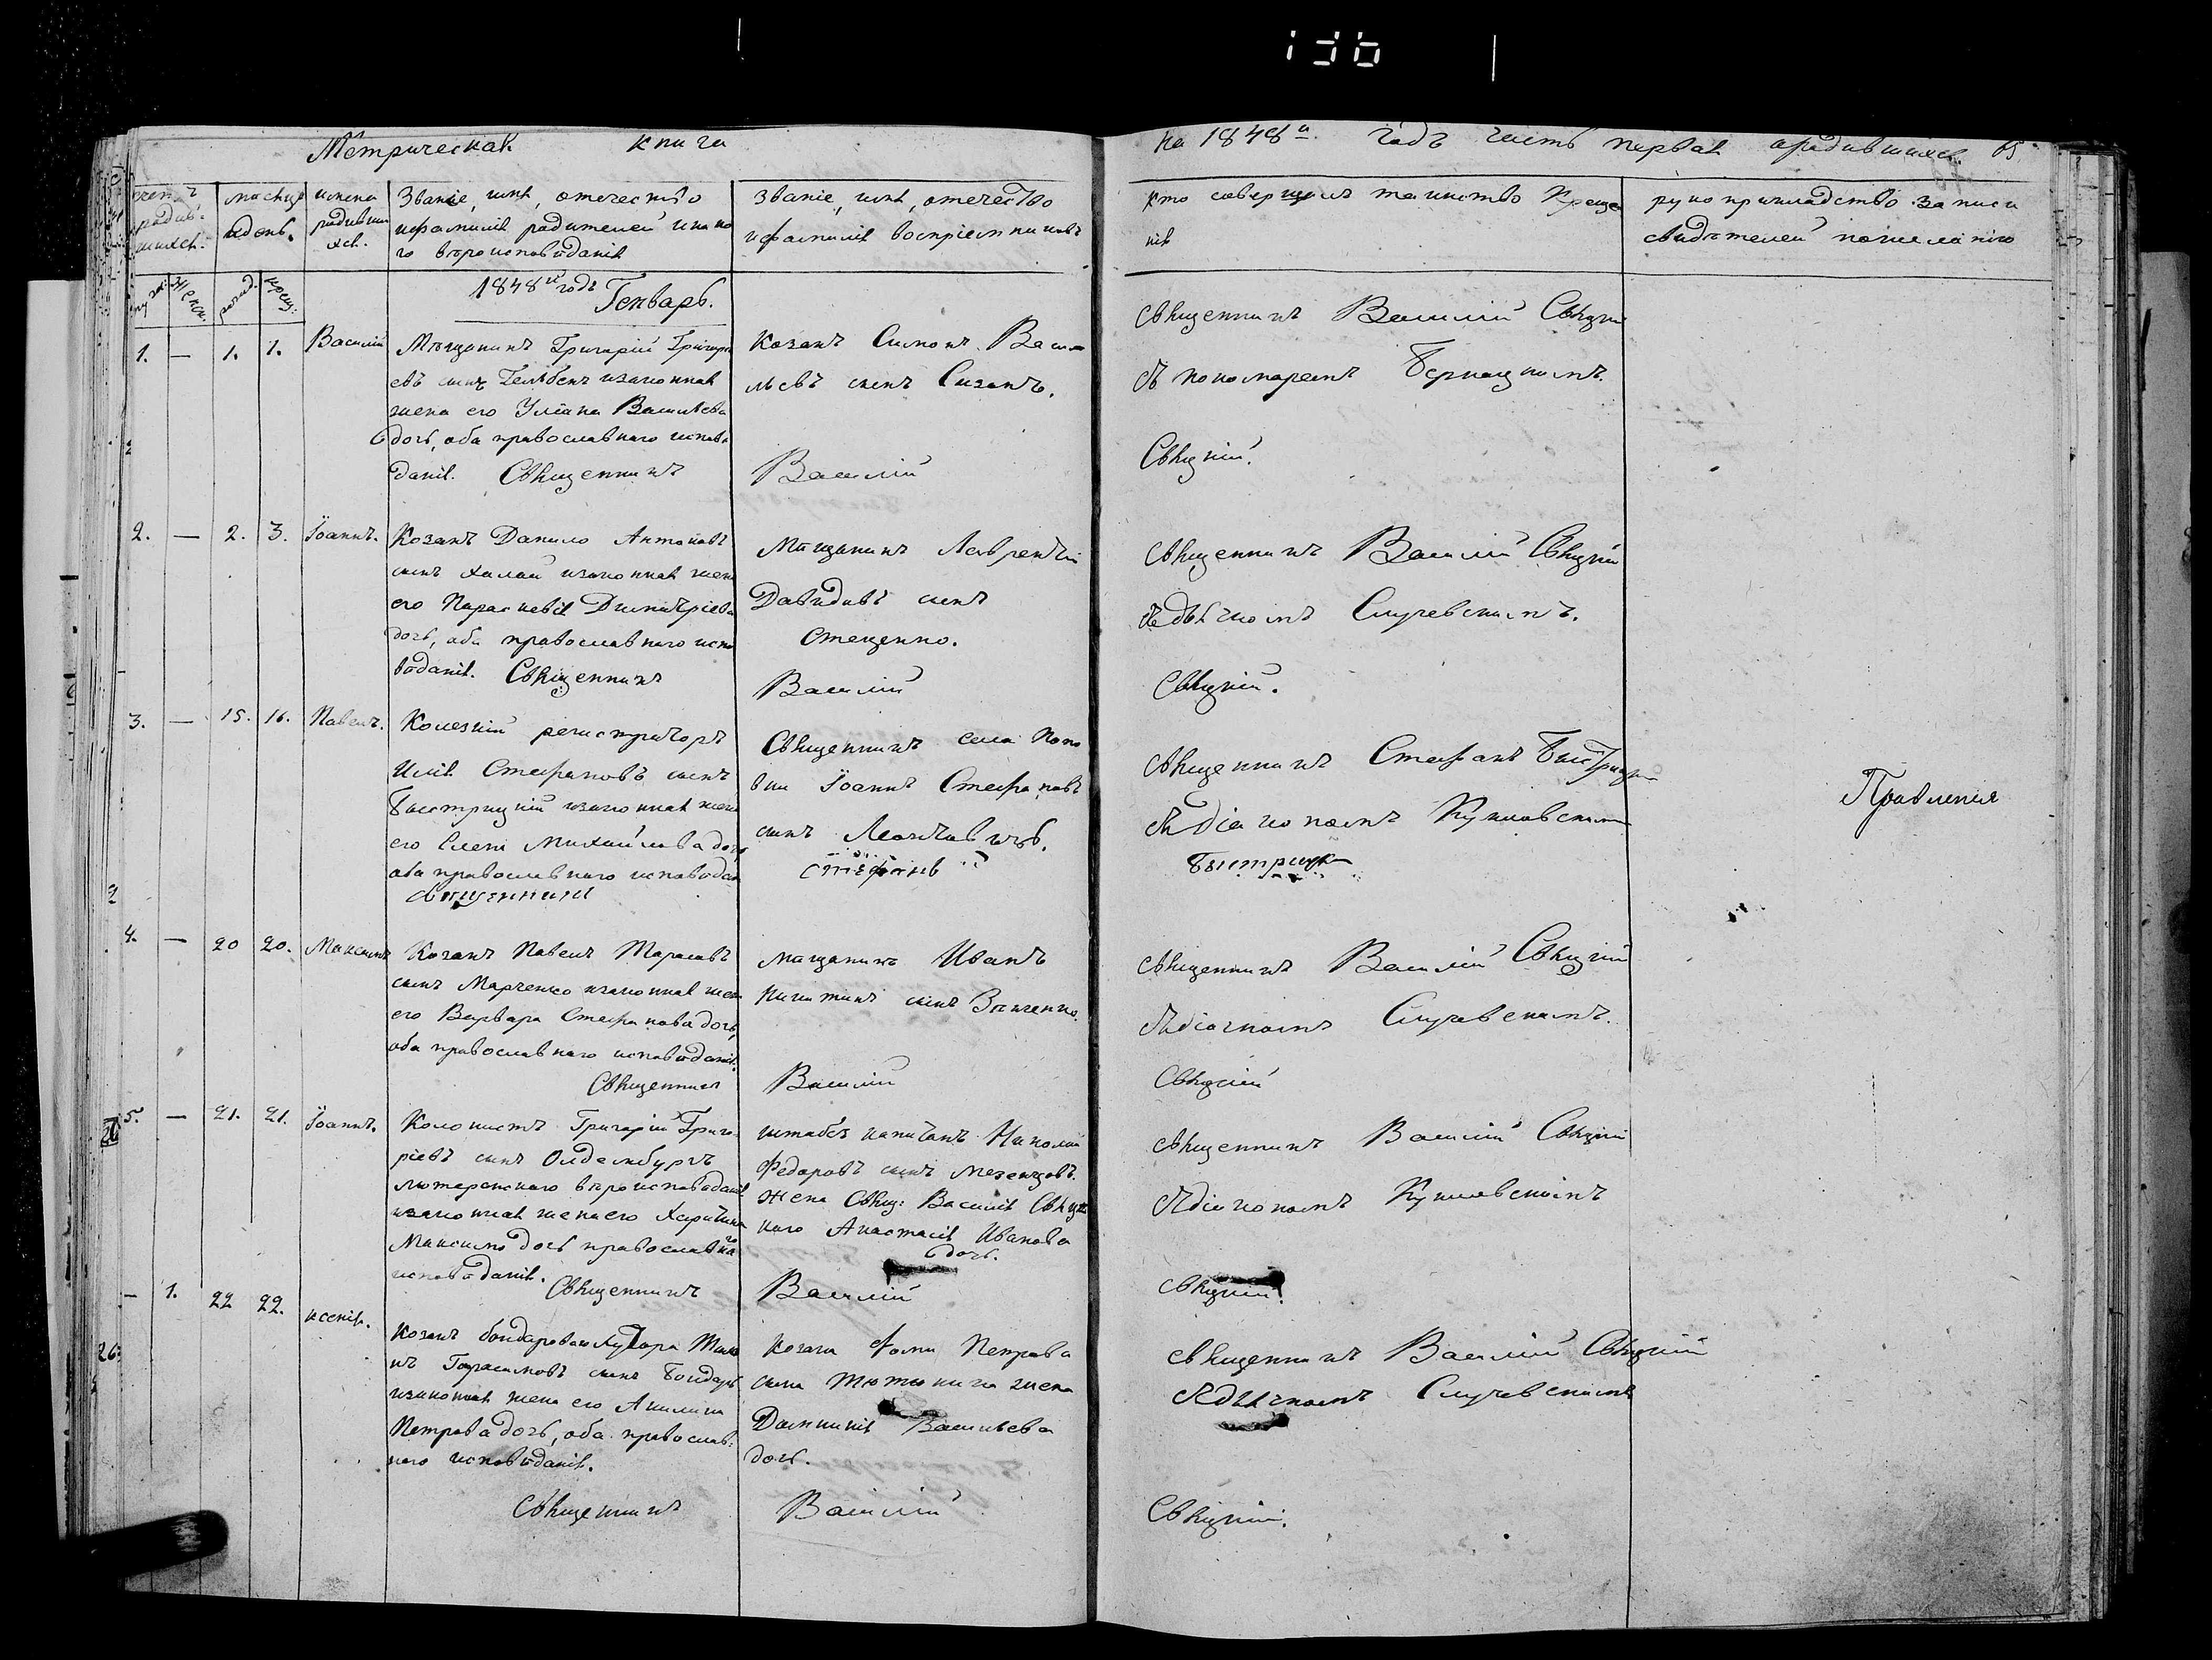 Метрическая книга
на 1848й годъ часть первая ородившихся 65
счетъ родив- шихся.
мѣсяцъ идень.
имена родивши хся.
Званіе, имя, отечество
ифамилія родителей ikako
го вѣроисповѣданія
Званіе, имя, отечество
ифамилія воспріемниковъ
кто совершалъ таинство Креще
нія
рукоприкладство записи
свидѣтелей пожеланію
муж: Женск. рожд. крещ:
1848й годъ Генварь.
1. — 1. 1. Василій
Мѣщанинъ Григорій Григорі
евъ сынъ изаконная
жена его Уліана Васильева
дочь, оба православнаго исповѣ
данія. Священникъ
Козакъ Симонъ Васи
льевъ сынъ Сизонъ.
Василій
священникъ Василій Свяцкі
съ пономаремъ Бернацкимъ.
Свяцкій.
2. — 2. 3. Іоаннъ.
Козакъ Данило Антоновъ
сынъ Халай изаконная жена
его Параскевія Димитріева
дочь, оба православнаго испо
вѣданія. Священникъ
Мѣщанинъ Лаврентій
Давидовъ сынъ
Стеценко.
Василій
священникъ Василій Свяцкій
сдьячкомъ Случевскимъ.
Свяцкій.
3. — 15. 16. Павелъ.
Колезкій регистраторъ
Илія Стефановъ сынъ
Быстрицкій изаконная жена
его Елена Михайлова дочь
оба православнаго исповѣдан
священникъ
Священникъ села Попо
вки Іоаннъ Стефановъ
сынъ Леонтовичъ.
стефанъ
священникъ Стефанъ Быстрицкі
сдіакономъ Куниловскимъ
Быстрицкі
Правленія
4. — 20 20. Максимъ
Козакъ Павелъ Тарасовъ
сынъ Марченко изаконная жена
его Варвара Стефанова дочь,
оба православнаго исповѣданія.
Священникъ
мѣщанинъ Иванъ
Никитинъ сынъ
Василій
священникъ Василій Свяцкій
сдіячкомъ Случевскимъ.
Свяцкій
5. — 21. 21. Іоаннъ.
Колонистъ Григорій Григо
ріевъ сынъ Олденбургъ
лютеранскаго вѣроисповѣданія
изаконная жена его Харитина
Максимо дочь православнаго
исповѣданія. Священникъ
штабсъ капитанъ Николай
Федоровъ сынъ Мезенцовъ.
Жена Свящ: Василія Свяцк
каго Анастасія Иванова
дочь.
Василій
священникъ Василій Свяцкій
сдіакономъ Куниловскимъ
свяцкій.
— 1. 22 22. ксенія.
козакъ бондаровскихутора
Герасимовъ сынъ Бондарь
изаконная жена его Акилина
Петрова дочь, оба православ:
наго исповѣданія.
Священникъ
козака Фомы Петрова
сына Тютюника жена
Домникія Васильева
дочь.
Василій
священникъ Василій Свяцкій
сдьячкомъ Случевскимъ
Свяцкій.